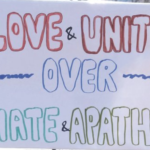 LOVE & UNIT
OVER
HATE & APATH